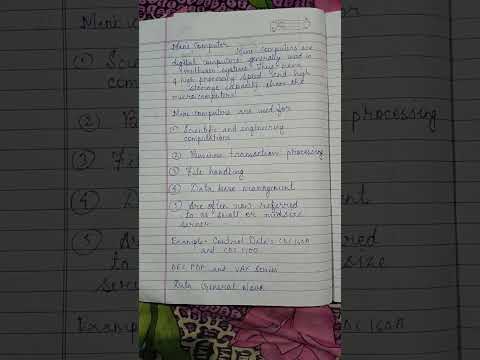 Mini Computer
Mini computers are
digital computers generally used in
multiuser systems. They have
high processing speed and high
storage capacity than the
microcomputers.
Mini computers are used for
① Scientific and engineering
computations
② Business transaction processing
③ File handling
④ Data base management
⑤ Are often now referred
to as small or midsize
server
Example - Control Data's CDC 160A
and CDC 1700
DEC PDP and VAX Series
Data General Nova